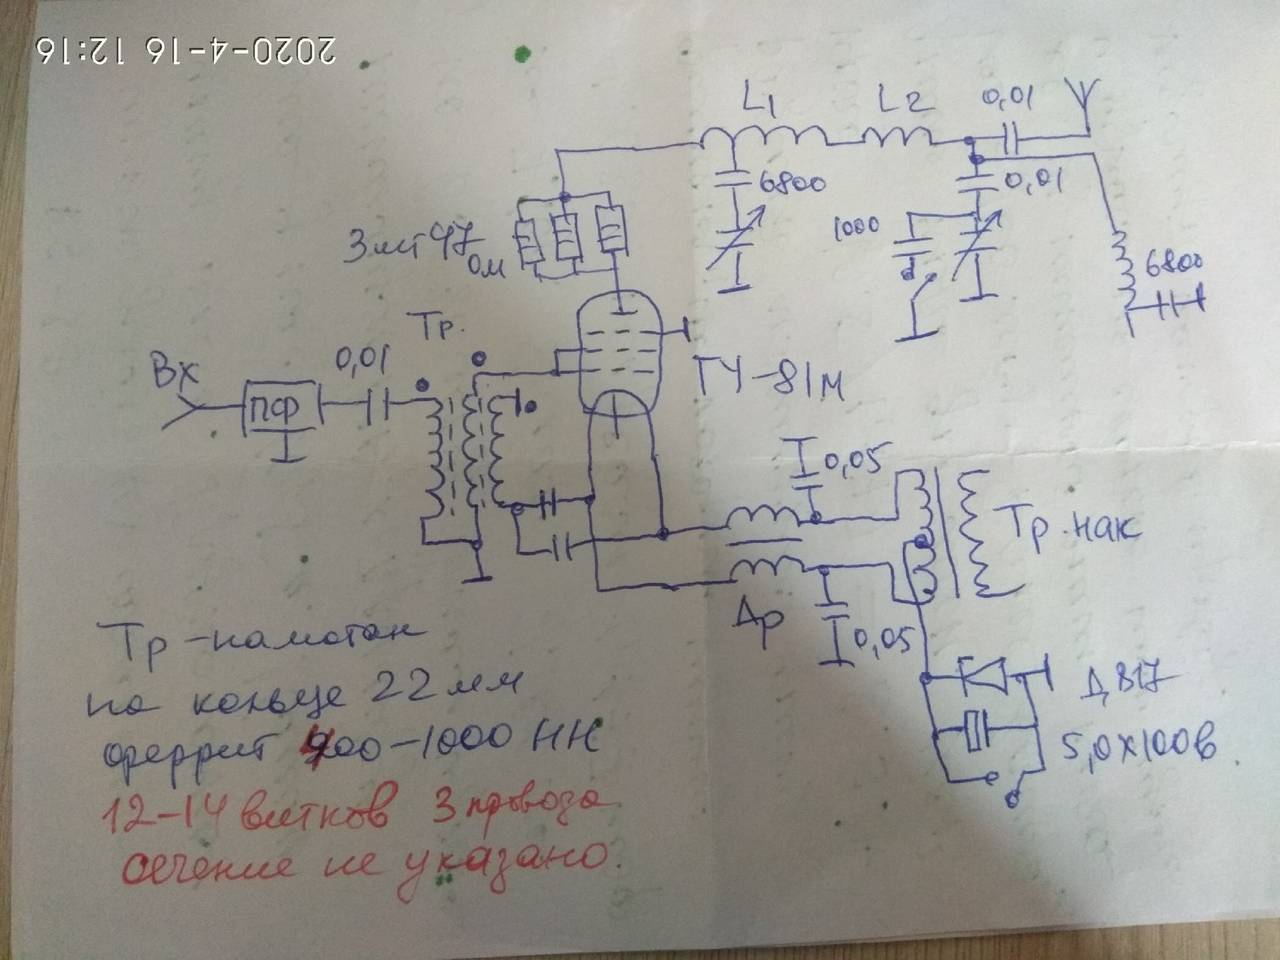 2020-4-16 12:16
L1
L2
0,01
6800
0,01
1000
6800
3шт 47
ом
Тр.
Вх
0,01
ПФ
ГУ-81м
0,05
Тр. нак
Др
0,05
Д 817
5,0х100в
Тр - намотан
на кольце 22 мм
феррит 400-1000 НН
12-14 витков 3 провода
сечение не указано.